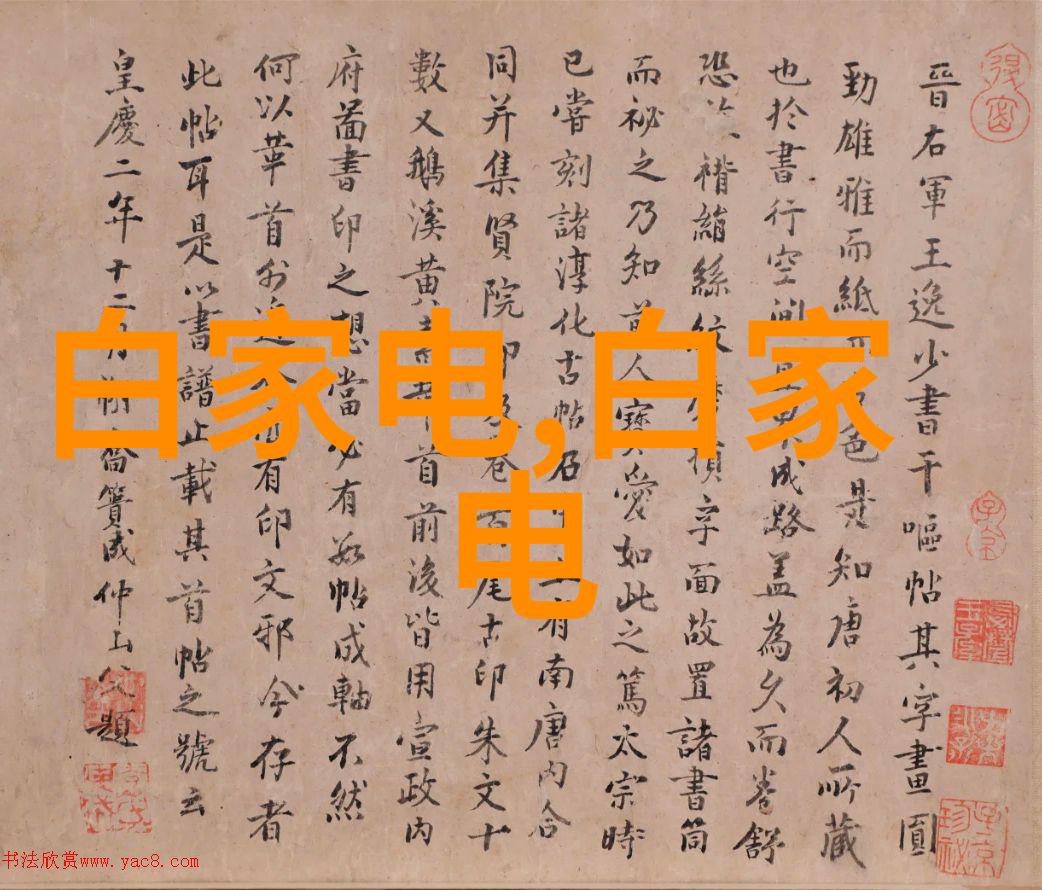 晉右軍王逸少書干嘔帖其字畫圓
勁雄雅而紙色是知唐初人所藏
也於書行空成路盖為久而卷舒
恐褙絹絲紋損字面故置諸書筒
而祕之乃知前人寶愛如此之篤太宗時
已嘗刻諸淳化古帖后有南唐内合
同并集賢院印卷尾古印朱文十
數又鵝溪黃首前後皆用宣政内
府啚書印之想當必有數帖成軸不然
何以華首外有印文邪今存者
此帖耳是以書譜止載其首帖之號云
皇慶二年十二月朔喬簣成仲山父題
白家电,白家
电
书法欣赏www.yac8.com